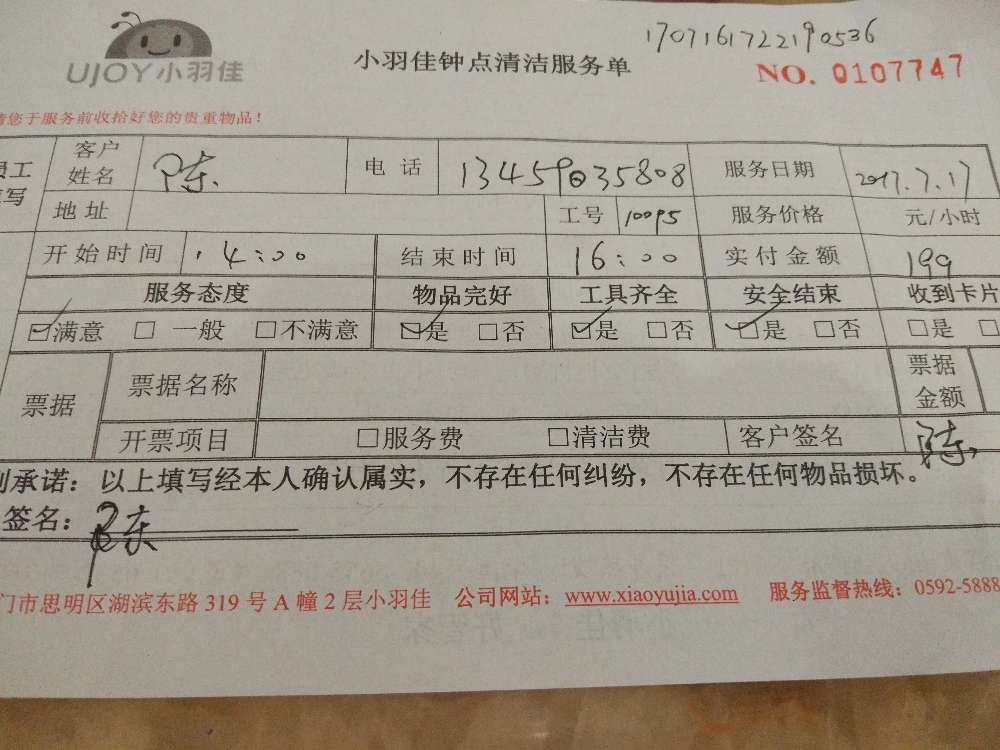 170716172219 0536
UJOY小羽佳 小羽佳钟点清洁服务单 NO. 0107747
请您于服务前收拾好您的贵重物品！
员工 客户姓名 陈 电话 13459035808 服务日期 2017.7.17
填写 地址 工号 10095 服务价格 元/小时
开始时间 14:00 结束时间 16:00 实付金额 199
服务态度 物品完好 工具齐全 安全结束 收到卡片
☑满意 □ 一般 □不满意 ☑是 □否 ☑是 □否 ☑是 □否 □是 □
票据 票据名称 票据金额
开票项目 □服务费 □清洁费 客户签名 陈
承诺：以上填写经本人确认属实，不存在任何纠纷，不存在任何物品损坏。
签名：陈
门市思明区湖滨东路 319 号 A 幢 2 层小羽佳 公司网站：www.xiaoyujia.com 服务监督热线：0592-5888